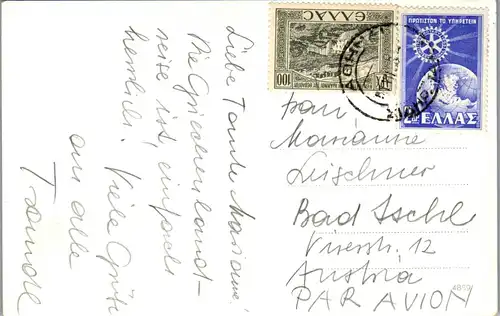 Liebe Tante Marianne!
Die Griechenland-
reise ist einfach
herrlich! Viele Grüße
an alle
ΕΛΛΑΣ
100
ΠΡΩΤΙΣΤΟΝ ΤΟ ΥΠΗΡΕΤΕΙΝ
ΕΛΛΑΣ
Frau
Marianne
Bad Ischl
12
Austria
PAR AVION